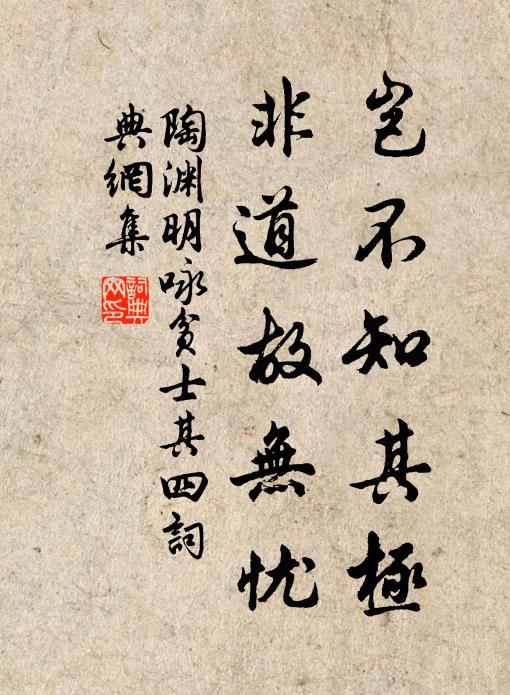 岂不知其極
非道故無忧
陶渊明咏贫士其四詞
典網集
詞典
网印